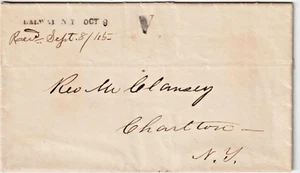 GALWAY N.Y. OCT 8 V
Recd. Sept. 8/45
Rev. Mc Clansey
Charlton
N.Y.